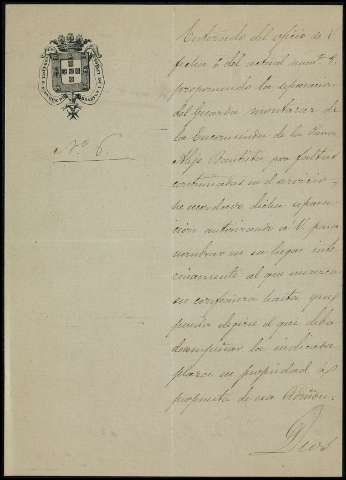 Nº 6.
Enterado del oficio de V.
fecha 6 del actual num.º
proponiendo la separación
del Guarda montaraz de
la Encomienda de la
Alejo Bautista por faltas
continuadas en el servicio
he acordado dicha separa-
ción autorizando a V. para
nombrar en su lugar inte-
rinamente al que merezca
su confianza hasta que
pueda elegirse el que deba
desempeñar la indicada
plaza en propiedad a
propuesta de esa Admón.
Dios